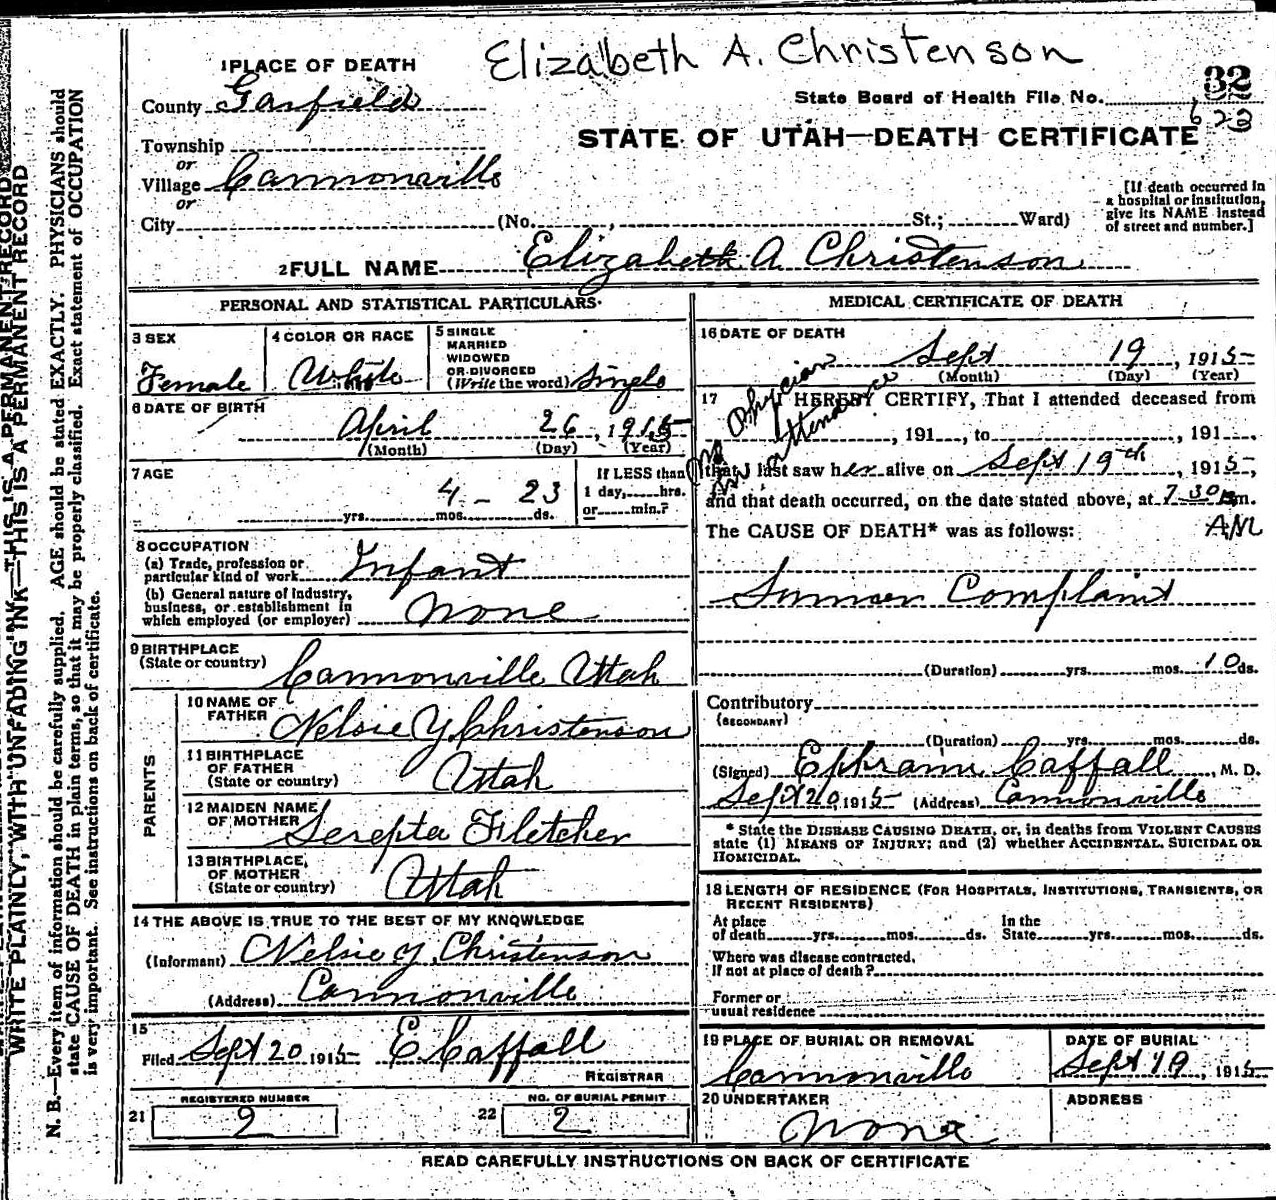 Elizabeth A. Christenson
1 PLACE OF DEATH
County Garfield
State Board of Health File No. 32
623
Township
or
Village Cannonville
or
City (No. , St.; Ward)
STATE OF UTAH—DEATH CERTIFICATE
[If death occurred in a hospital or institution, give its NAME instead of street and number.]
2 FULL NAME Elizabeth A Christenson
PERSONAL AND STATISTICAL PARTICULARS
3 SEX
Female
4 COLOR OR RACE
White
5 SINGLE
MARRIED
WIDOWED
OR DIVORCED
(Write the word) Single
6 DATE OF BIRTH
April 26, 1915
(Month) (Day) (Year)
7 AGE
4 - 23
yrs. mos. ds.
If LESS than
1 day, hrs.
or min.?
8 OCCUPATION
(a) Trade, profession or
particular kind of work Infant
(b) General nature of industry,
business, or establishment in
which employed (or employer) None
9 BIRTHPLACE
(State or country) Cannonville Utah
PARENTS
10 NAME OF
FATHER Nelsie Y. Christenson
11 BIRTHPLACE
OF FATHER
(State or country) Utah
12 MAIDEN NAME
OF MOTHER Serepta Fletcher
13 BIRTHPLACE
OF MOTHER
(State or country) Utah
14 THE ABOVE IS TRUE TO THE BEST OF MY KNOWLEDGE
(Informant) Nelsie Y. Christenson
(Address) Cannonville
15
Filed Sept 20 1915 E Caffall
REGISTRAR
21 REGISTERED NUMBER
2
22 NO. OF BURIAL PERMIT
2
MEDICAL CERTIFICATE OF DEATH
16 DATE OF DEATH
Sept 19, 1915
(Month) (Day) (Year)
17 I HEREBY CERTIFY, That I attended deceased from
, 191 , to , 191
No Physician
in attendance
that I last saw her alive on Sept 19th, 1915,
and that death occurred, on the date stated above, at 7 30 m.
AM
The CAUSE OF DEATH* was as follows:
Summer Complaint
(Duration) yrs. mos. 10 ds.
Contributory
(SECONDARY)
(Duration) yrs. mos. ds.
(Signed) Ephraim Caffall, M. D.
Sept 20, 1915 (Address) Cannonville
* State the DISEASE CAUSING DEATH, or, in deaths from VIOLENT CAUSES
state (1) MEANS OF INJURY; and (2) whether ACCIDENTAL, SUICIDAL OR
HOMICIDAL.
18 LENGTH OF RESIDENCE (FOR HOSPITALS, INSTITUTIONS, TRANSIENTS, OR
RECENT RESIDENTS)
At place
of death yrs. mos. ds.
In the
State yrs. mos. ds.
Where was disease contracted,
if not at place of death?
Former or
usual residence
19 PLACE OF BURIAL OR REMOVAL
Cannonville
DATE OF BURIAL
Sept 19, 1915
20 UNDERTAKER
None
ADDRESS
READ CAREFULLY INSTRUCTIONS ON BACK OF CERTIFICATE
WRITE PLAINLY, WITH UNFADING INK—THIS IS A PERMANENT RECORD
N. B.—Every item of information should be carefully supplied. AGE should be stated EXACTLY. PHYSICIANS should
state CAUSE OF DEATH in plain terms, so that it may be properly classified. Exact statement of OCCUPATION
is very important. See instructions on back of certificate.